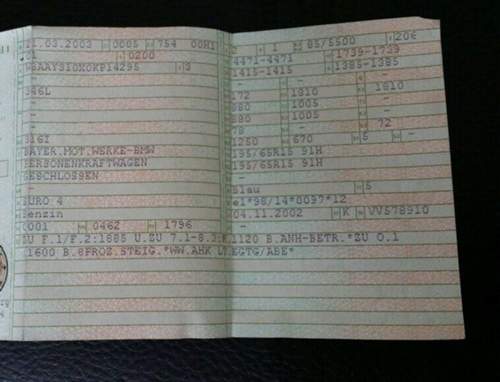 11.03.2003 0005 754 00H1
01 0200
WBAAY31OXOKP14295 3
-
346L
-
-
316I
BAYER.MOT.WERKE-BMW
PERSONENKRAFTWAGEN
GESCHLOSSEN
-
EURO 4
Benzin
0001 0462 1796
ZU F.1/F.2:1885 U.ZU 7.1-8.3:
1600 B.8PROZ.STEIG.*WW.AHK LT.EGTG/ABE*
- 1 85/5500 206
4471-4471 1739-1739
1415-1415 1385-1385
- -
172 1810 1810
880 1005 -
880 1005 -
78 - 72
1250 670 5 -
195/65R15 91H
195/65R15 91H
-
Blau 5
e1*98/14*0097*12
04.11.2002 K VV578910
1120 B.ANH-BETR.*ZU O.1